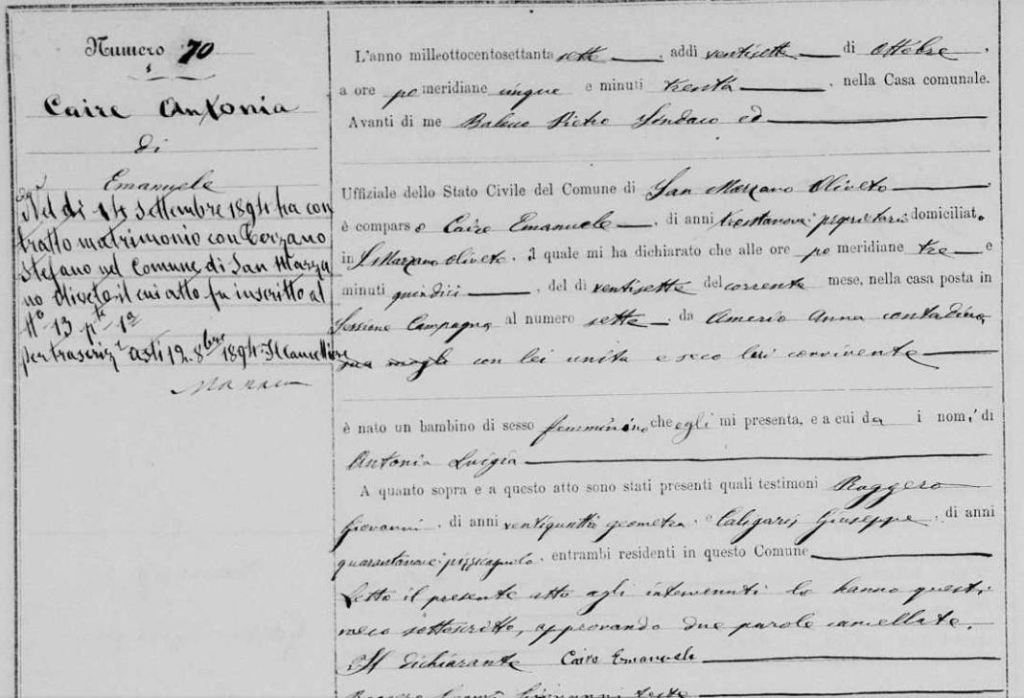 Numero 70
Caire Antonia
di
Emanuele
Nel dì 14 Settembre 1894 ha con
tratto matrimonio con Terzano
Stefano nel Comune di San Marza
no Oliveto il cui atto fu inscritto al
N° 13 pte 1a
per trascrize Asti 12 8bre 1894 Il Cancelliere
L'anno milleottocentosettanta sette, addì ventisette di Ottobre,
a ore po meridiane cinque e minuti trenta, nella Casa comunale.
Avanti di me Pietro Sindaco ed
Uffiziale dello Stato Civile del Comune di San Marzano Oliveto
è compars o Caire Emanuele, di anni trentanove, proprietario domiciliato
in S. Marzano Oliveto, il quale mi ha dichiarato che alle ore po meridiane tre e
minuti quindici, del dì ventisette del corrente mese, nella casa posta in
Sessione Campagna al numero sette, da Amerio Anna contadina,
sua moglie con lei unita e seco lui convivente
è nato un bambino di sesso femminino che egli mi presenta, e a cui da i nomi di
Antonia Luigia
A quanto sopra e a questo atto sono stati presenti quali testimoni Roggero
Giovanni, di anni ventiquattro geometra, e Caligaris Giuseppe, di anni
quarantanove, pizzicagnolo, entrambi residenti in questo Comune
Letto il presente atto agli intervenuti lo hanno questi
meco sottoscritto, approvando due parole cancellate.
Il dichiarante Caire Emanuele
Giovanni teste